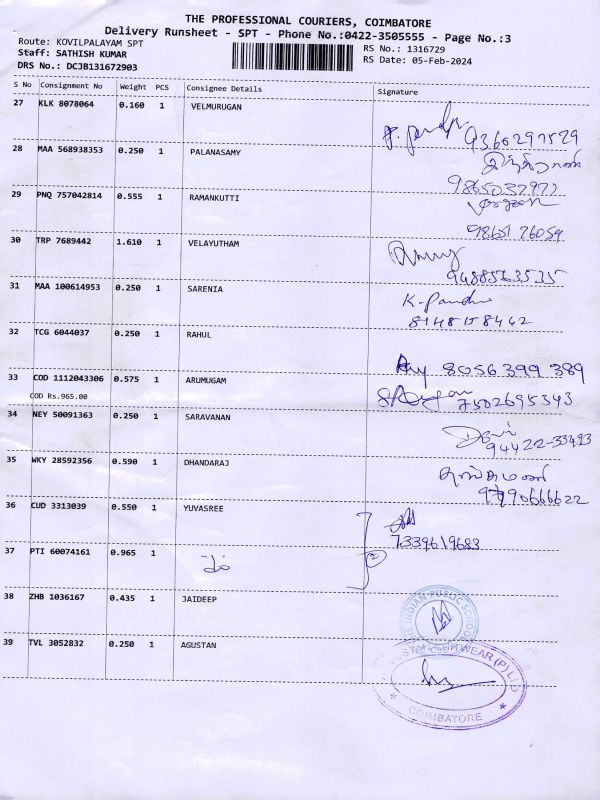 THE PROFESSIONAL COURIERS, COIMBATORE
Delivery Runsheet - SPT - Phone No.:0422-3505555 - Page No.:3
Route: KOVILPALAYAM SPT
RS No.: 1316729
Staff: SATHISH KUMAR
RS Date: 05-Feb-2024
DRS No.: DCJB131672903
S No Consignment No Weight PCS Consignee Details Signature
27 KLK 8078064 0.160 1 VELMURUGAN
9360297529
28 MAA 568938353 0.250 1 PALANASAMY
9865037977
29 PNQ 757042814 0.555 1 RAMANKUTTI
98651 76059
30 TRP 7689442 1.610 1 VELAYUTHAM
9488563535
31 MAA 100614953 0.250 1 SARENIA
K. Pandi
8148158462
32 TCG 6044037 0.250 1 RAHUL
8056 399 389
33 COD 1112043306 0.575 1 ARUMUGAM
7502695343
COD Rs.965.00
34 NEY 50091363 0.250 1 SARAVANAN
Devi
94422-33493
35 WKY 28592356 0.590 1 DHANDARAJ
9790666622
36 CUD 3313039 0.550 1 YUVASREE
7339619683
37 PTI 60074161 0.965 1
2
38 ZHB 1036167 0.435 1 JAIDEEP
THE INDIAN PUBLIC SCHOOL
39 TVL 3052832 0.250 1 AGUSTAN
WEAR (P) LTD
COIMBATORE